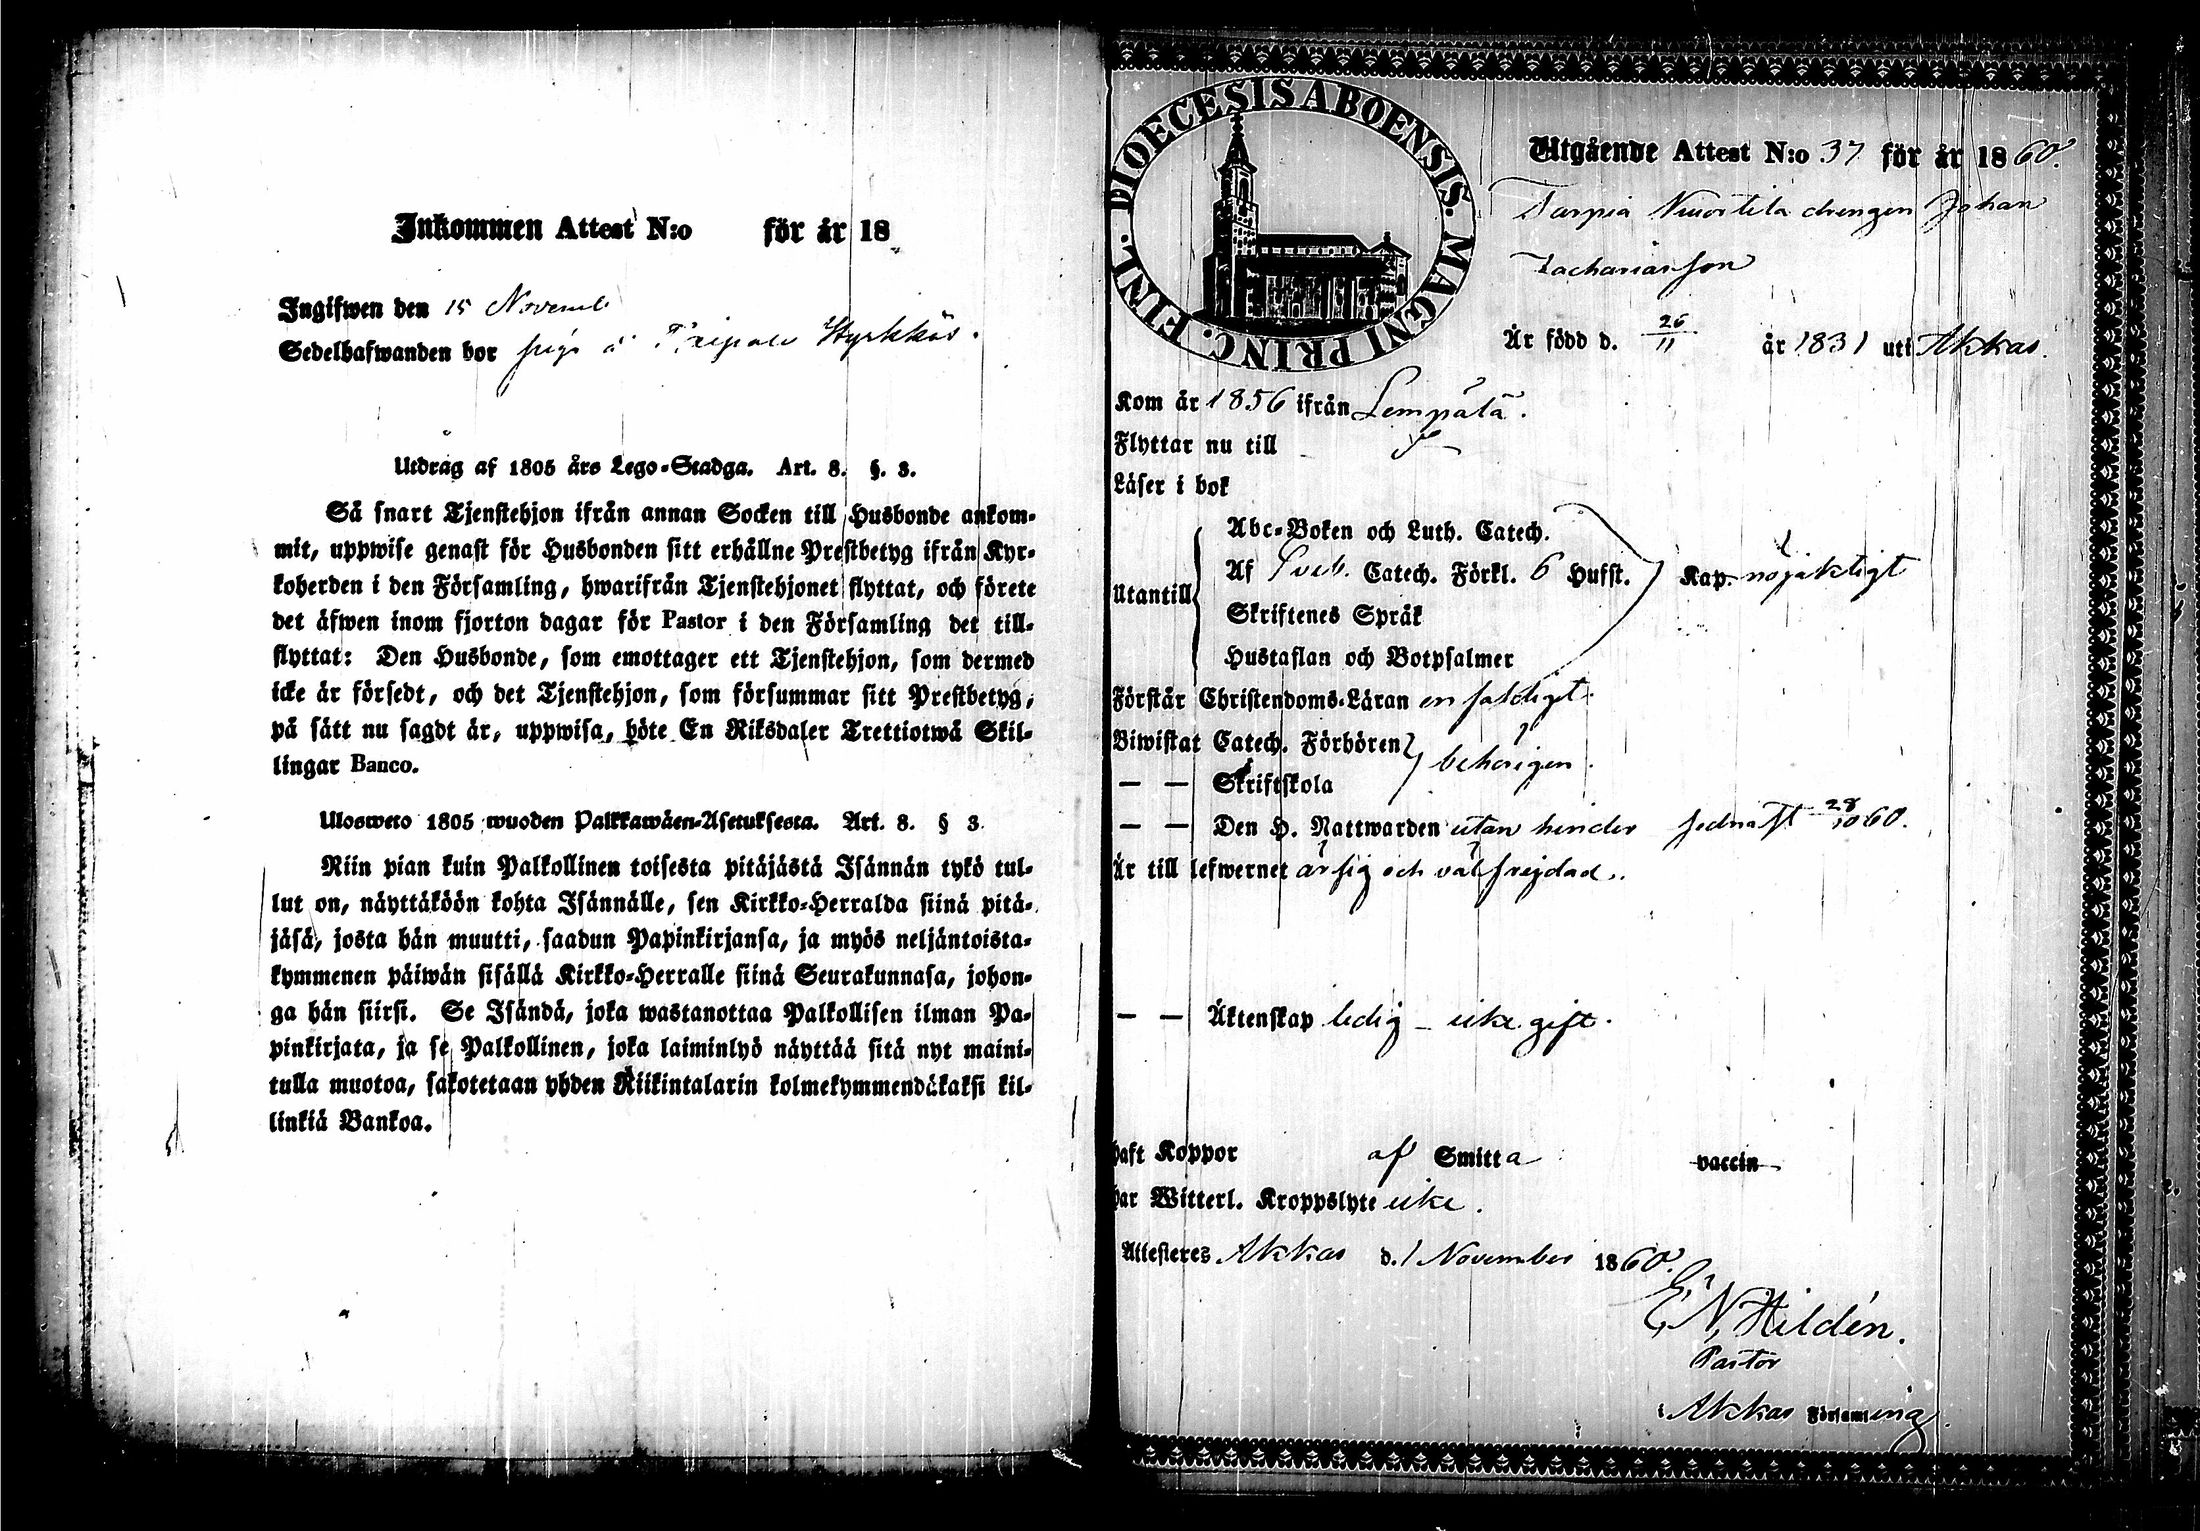 Inkommen Attest N:o för år 18
Ingifwen den 15 Novemb
Sedelhafwanden bor Styrkkäs.
Utdrag af 1805 års Lego-Stadga. Art. 8. §. 3.
Så snart Tjenstehjon ifrån annan Socken till Husbonde ankom-
mit, uppwise genast för Husbonden sitt erhållne Prestbetyg ifrån Kyr-
koherden i den Församling, hwarifrån Tjenstehjonet flyttat, och förete
det äfwen inom fjorton dagar för Pastor i den Församling det till-
flyttat: Den Husbonde, som emottager ett Tjenstehjon, som dermed
icke är försedt, och det Tjenstehjon, som försummar sitt Prestbetyg,
på sätt nu sagdt är, uppwisa, böte En Riksdaler Trettiotwå Skil-
lingar Banco.
Ulosweto 1805 wuoden Palkkawäen-Asetuksesta. Art. 8. § 3.
Niin pian kuin Palkollinen toisesta pitäjästä Isännän tykö tul-
lut on, näyttäköön kohta Isännälle, sen Kirkko-Herralda siinä pitä-
jäsä, josta hän muutti, saadun Papinkirjansa, ja myös neljäntoista-
kymmenen päiwän sisällä Kirkko-Herralle siinä Seurakunnasa, johon-
ga hän siirsi. Se Isändä, joka wastanottaa Palkollisen ilman Pa-
pinkirjata, ja se Palkollinen, joka laiminlyö näyttää sitä nyt maini-
tulla muotoa, sakotetaan yhden Riikintalarin kolmekymmendäkaksi kil-
linkiä Bankoa.
DIOECESIS ABOENSIS. MAGNI PRINC. FINL.
Utgående Attest N:o 37 för år 1860.
Tarpia Nuortila drengen Johan
Zachariasson
Är född d. 26/11 år 1831 uti Akkas.
Kom år 1856 ifrån Lempälä.
Flyttar nu till
Läser i bok
Utantill
Abc-Boken och Luth. Catech.
Af Sveb. Catech. Förkl. 6 Hufst. Kap. nöjaktigt
Skriftenes Språk
Hustaflan och Botpsalmer
Förstår Christendoms-Läran enfaldigt.
Biwistat Catech. Förhören behörigen.
— — Skriftskola
— — Den H. Nattwarden utan hinder sednast 28/10 60.
Är till lefwernet ärlig och välfrejdad..
— — Äktenskap ledig - icke gift.
haft Koppor af Smitta vaccin
har Witterl. Kroppslyte icke.
Attesteres Akkas d. 1 November 1860.
E, N, Hildén.
Pastor
i Akkas Församling.